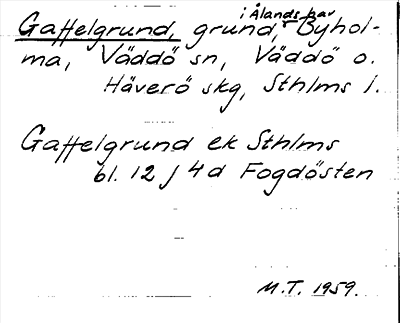 Gaffelgrund, grund, i Ålands hav Byhol-
ma, Väddö sn, Väddö o.
Häverö skg, Sthlms l.
Gaffelgrund ek Sthlms
bl. 12 j 4d Fogdösten
M.T. 1959.